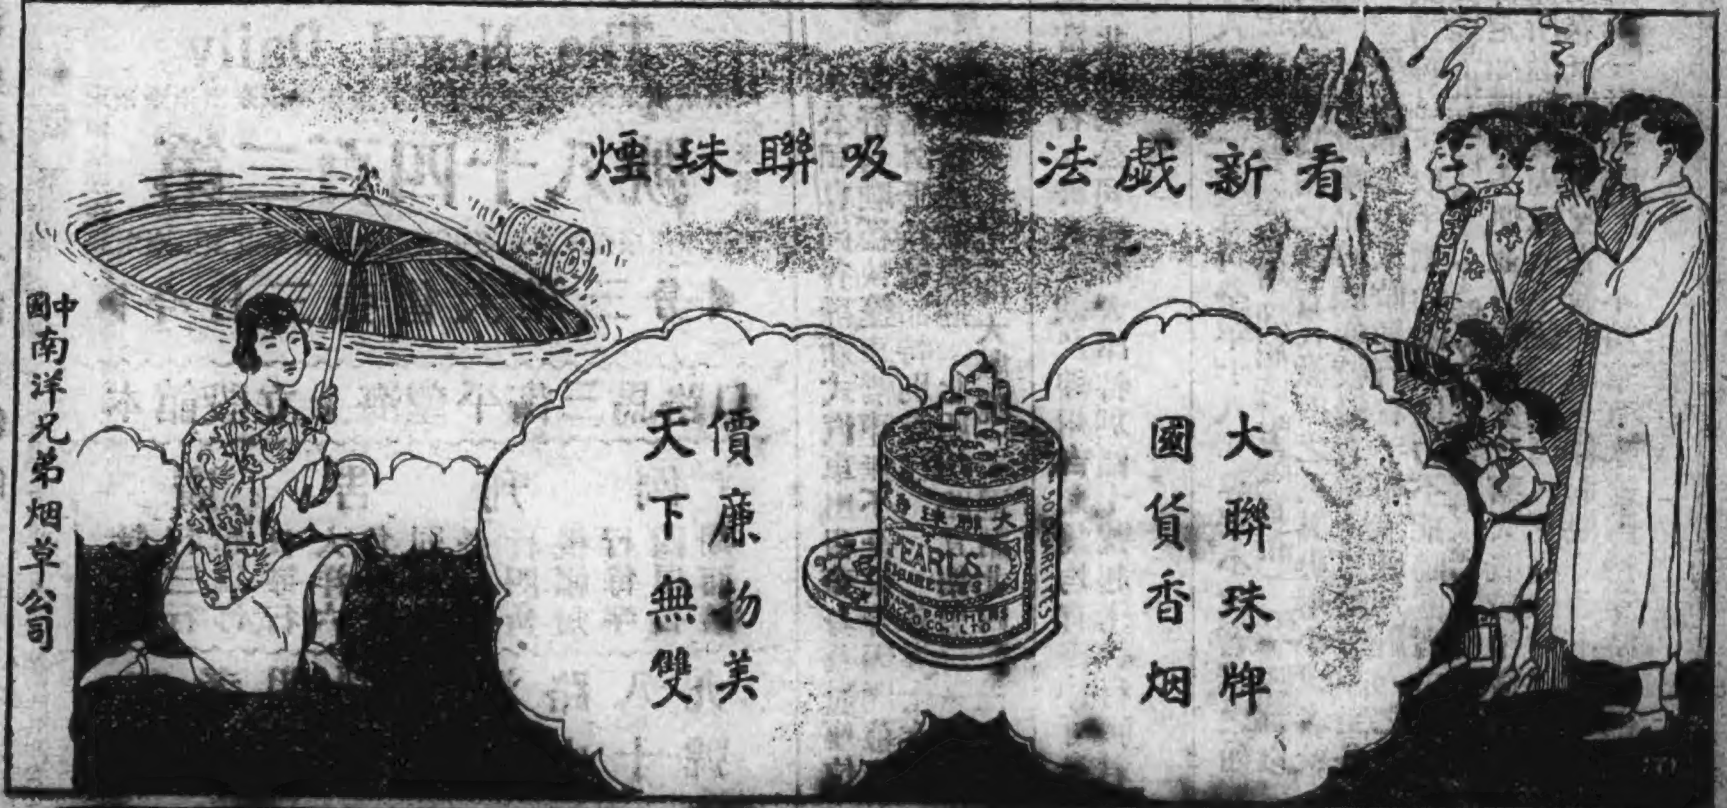 看新戯法
吸聯珠煙
大聯珠牌
國貨香烟
價廉物美
天下無雙
大聯珠香
PEARLS
CIGARETTES
TOBACCO CO., LTD
50 CIGARETTES
中國南洋兄弟烟草公司